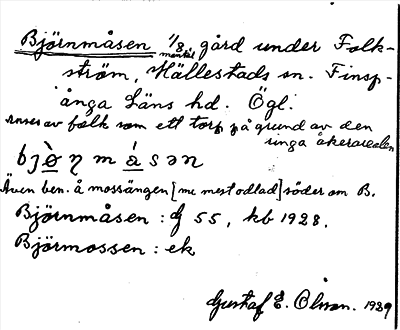 Björnmåsen 1/8 mantal gård under Folk-
ström, Hällestads sn. Finsp-
ånga Läns hd. Ögl.
Anses av folk som ett torp på grund av den
ringa åkerarealen
bjö̀ɳmå̀sən
Även ben. å mossängen [nu mest odlad] söder om B.
Björnmåsen: G 55, kb 1928.
Björmossen: ek
Gustaf E. Olsson. 1939